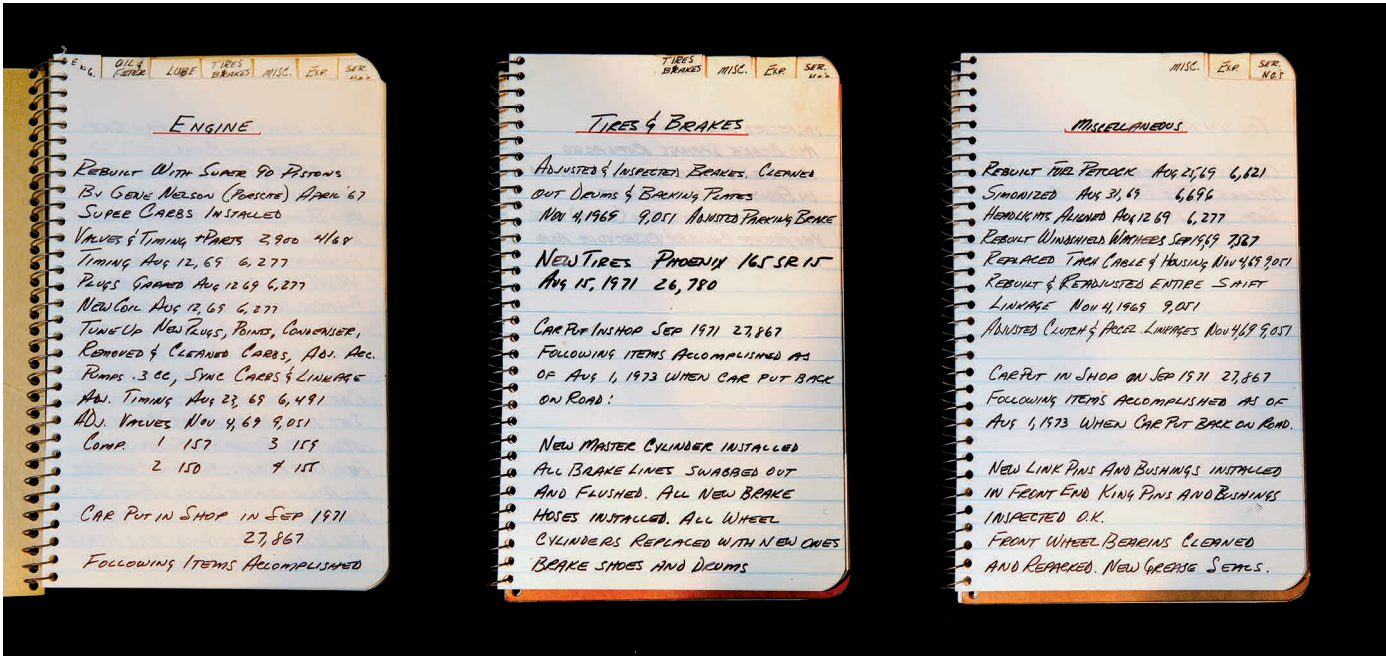 ENG.
OIL &
FILTER
LUBE
TIRES
BRAKES
MISC.
EXP.
SER.
NO'S
ENGINE
REBUILT WITH SUPER 90 PISTONS
BY GENE NELSON (PORSCHE) APRIL '67
SUPER CARBS INSTALLED
VALVES & TIMING + PARTS 2,900 4/68
TIMING AUG 12, 69 6,277
PLUGS GAPPED AUG 12 69 6,277
NEW COIL AUG 12, 69 6,277
TUNE UP NEW PLUGS, POINTS, CONDENSER,
REMOVED & CLEANED CARBS, ADJ. ACC.
PUMPS .3 CC, SYNC CARBS & LINKAGE
ADJ. TIMING AUG 23, 69 6,491
ADJ. VALVES NOV 4, 69 9,051
COMP. 1 157 3 159
2 150 4 155
CAR PUT IN SHOP IN SEP 1971
27,867
FOLLOWING ITEMS ACCOMPLISHED
TIRES
BRAKES
MISC.
EXP.
SER.
NO'S
TIRES & BRAKES
ADJUSTED & INSPECTED BRAKES, CLEANED
OUT DRUMS & BACKING PLATES
NOV 4, 1969 9,051 ADJUSTED PARKING BRAKE
NEW TIRES PHOENIX 165 SR 15
AUG 15, 1971 26,780
CAR PUT IN SHOP SEP 1971 27,867
FOLLOWING ITEMS ACCOMPLISHED AS
OF AUG 1, 1973 WHEN CAR PUT BACK
ON ROAD:
NEW MASTER CYLINDER INSTALLED
ALL BRAKE LINES SWABBED OUT
AND FLUSHED. ALL NEW BRAKE
HOSES INSTALLED. ALL WHEEL
CYLINDERS REPLACED WITH NEW ONES
BRAKE SHOES AND DRUMS
MISC.
EXP.
SER.
NO'S
MISCELLANEOUS
REBUILT FUEL PETCOCK AUG 21, 69 6,621
SIMONIZED AUG 31, 69 6,696
HEADLIGHTS ALIGNED AUG 12 69 6,277
REBUILT WINDSHIELD WASHERS SEP 1969 7,367
REPLACED TACH CABLE & HOUSING NOV 4, 69 9,051
REBUILT & READJUSTED ENTIRE SHIFT
LINKAGE NOV 4, 1969 9,051
ADJUSTED CLUTCH & ACCEL. LINKAGES NOV 4, 69 9,051
CAR PUT IN SHOP ON SEP 1971 27,867
FOLLOWING ITEMS ACCOMPLISHED AS OF
AUG 1, 1973 WHEN CAR PUT BACK ON ROAD.
NEW LINK PINS AND BUSHINGS INSTALLED
IN FRONT END KING PINS AND BUSHINGS
INSPECTED O.K.
FRONT WHEEL BEARING CLEANED
AND REPACKED. NEW GREASE SEALS.